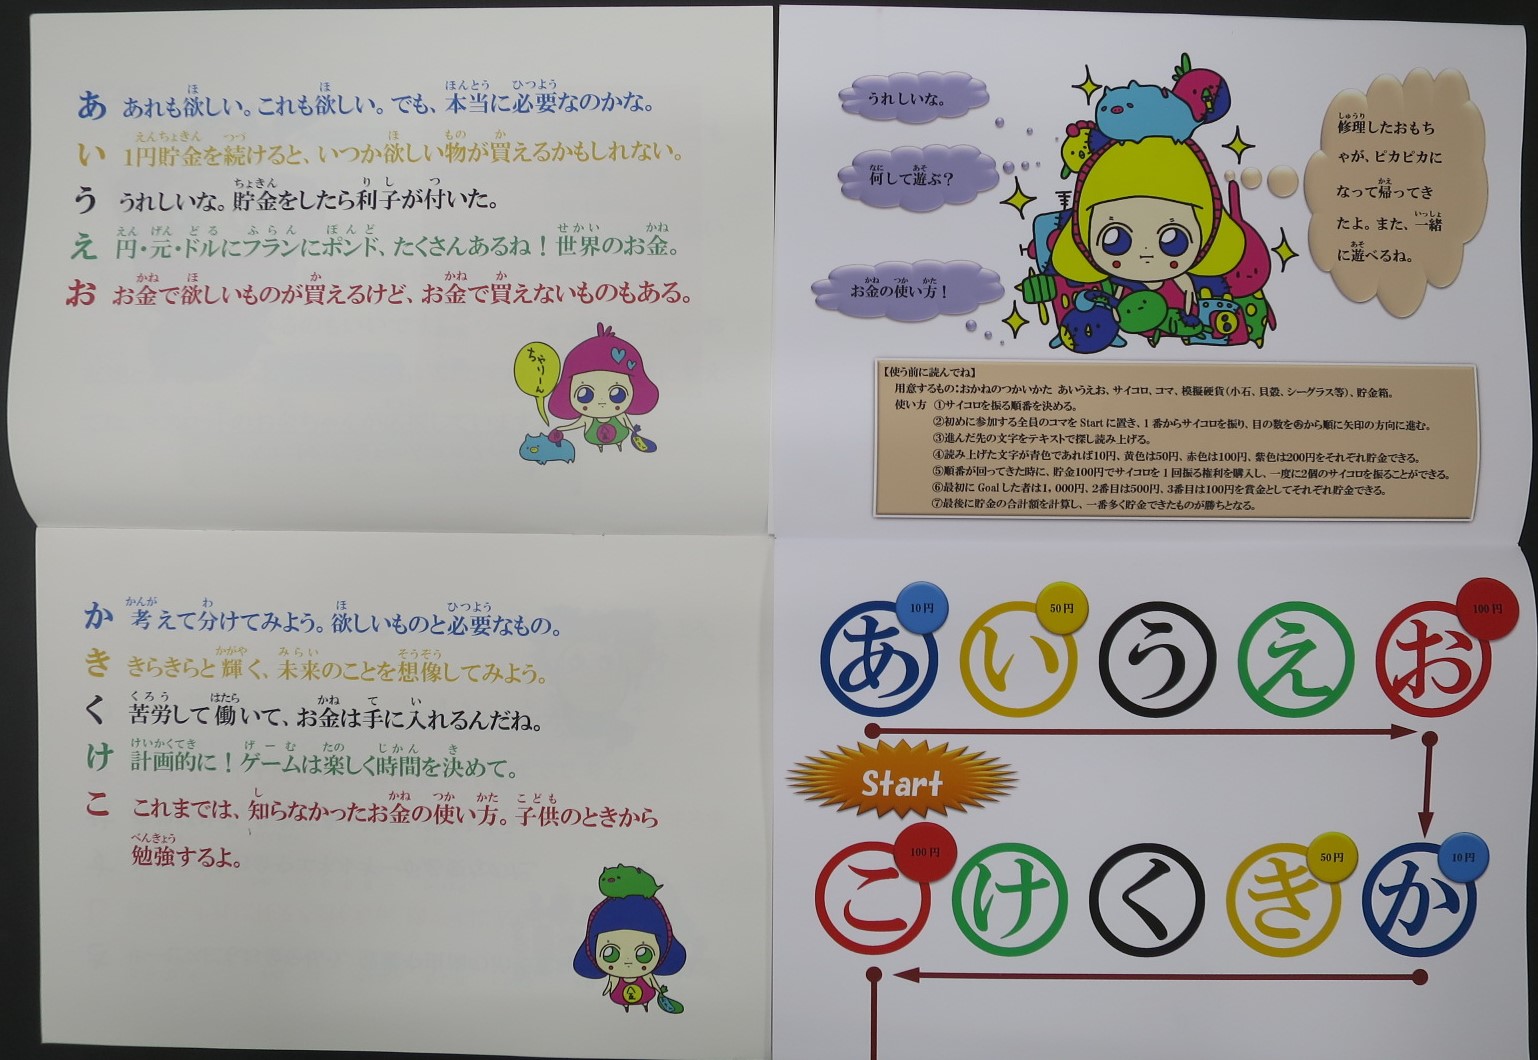 あ あれも欲しい。これも欲しい。でも、本当に必要なのかな。
い 1円貯金を続けると、いつか欲しい物が買えるかもしれない。
う うれしいな。貯金をしたら利子が付いた。
え 円・元・ドルにフランにポンド、たくさんあるね！世界のお金。
お お金で欲しいものが買えるけど、お金で買えないものもある。
ちゃりーん
うれしいな。
何して遊ぶ？
お金の使い方！
修理したおもち
ゃが、ピカピカに
なって帰ってき
たよ。また、一緒
に遊べるね。
【使う前に読んでね】
用意するもの：おかねのつかいかた あいうえお、サイコロ、コマ、模擬硬貨（小石、貝殻、シーグラス等）、貯金箱。
使い方 ①サイコロを振る順番を決める。
②初めに参加する全員のコマを Start に置き、1番からサイコロを振り、目の数をあから順に矢印の方向に進む。
③進んだ先の文字をテキストで探し読み上げる。
④読み上げた文字が青色であれば10円、黄色は50円、赤色は100円、紫色は200円をそれぞれ貯金できる。
⑤順番が回ってきた時に、貯金100円でサイコロを1回振る権利を購入し、一度に2個のサイコロを振ることができる。
⑥最初に Goal した者は1，000円、2番目は500円、3番目は100円を賞金としてそれぞれ貯金できる。
⑦最後に貯金の合計額を計算し、一番多く貯金できたものが勝ちとなる。
か 考えて分けてみよう。欲しいものと必要なもの。
き きらきらと輝く、未来のことを想像してみよう。
く 苦労して働いて、お金は手に入れるんだね。
け 計画的に！ゲームは楽しく時間を決めて。
こ これまでは、知らなかったお金の使い方。子供のときから
勉強するよ。
あ 10円 い 50円 う え お 100円
Start
こ 100円 け く き 50円 か 10円